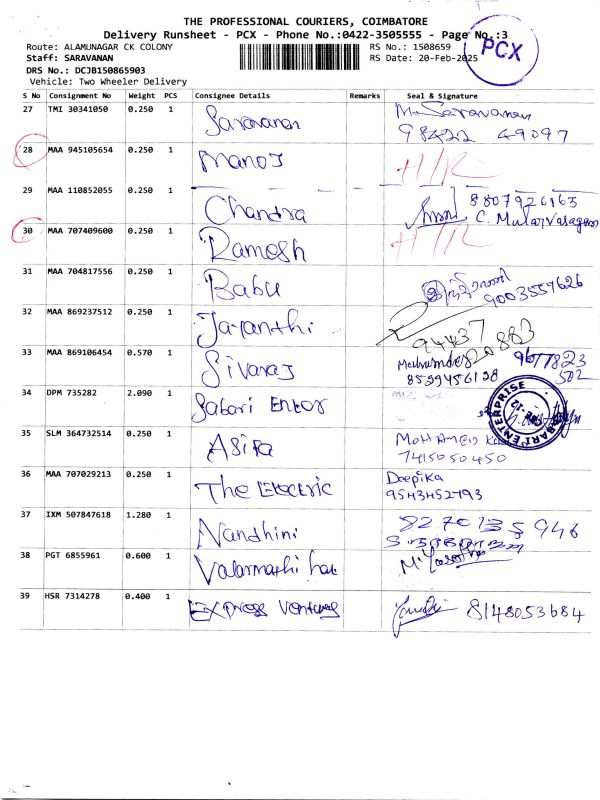 THE PROFESSIONAL COURIERS, COIMBATORE
Delivery Runsheet - PCX - Phone No.:0422-3505555 - Page No.:3
PCX
Route: ALAMUNAGAR CK COLONY
RS No.: 1508659
Staff: SARAVANAN
RS Date: 20-Feb-2025
DRS No.: DCJB150865903
Vehicle: Two Wheeler Delivery
S No Consignment No Weight PCS Consignee Details Remarks Seal & Signature
27 TMI 30341050 0.250 1 Saravanan M. Saravanan
98422 49097
28 MAA 945105654 0.250 1 Manoj H/R
29 MAA 110852055 0.250 1 Chandra 8807926163
C.
30 MAA 707409600 0.250 1 Ramesh H/R
31 MAA 704817556 0.250 1 Babu
9003557626
32 MAA 869237512 0.250 1 Jayanthi
94437 20883
33 MAA 869106454 0.570 1 Sivaraj 9677823
8529456128 502
34 DPM 735282 2.090 1 Sabari Enter
SABARI ENTERPRISE
35 SLM 364732514 0.250 1 Asifa MOHAMED
7415050450
36 MAA 707029213 0.250 1 The Electric Deepika
9543452793
37 IXM 507847618 1.280 1 Nandhini
38 PGT 6855961 0.600 1 Valarmathi
39 HSR 7314278 0.400 1 Express Ventures 8148053684